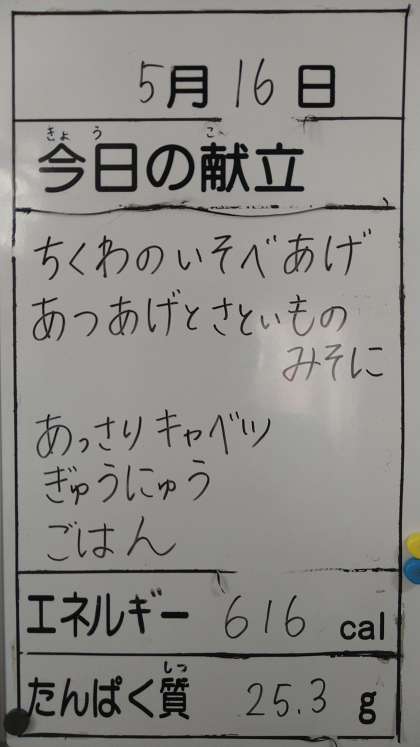 5月16日
きょう こ
今日の献立
ちくわのいそべあげ
あつあげとさといもの
みそに
あっさりキャベツ
ぎゅうにゅう
ごはん
エネルギー 616 cal
しつ
たんぱく質 25.3 g